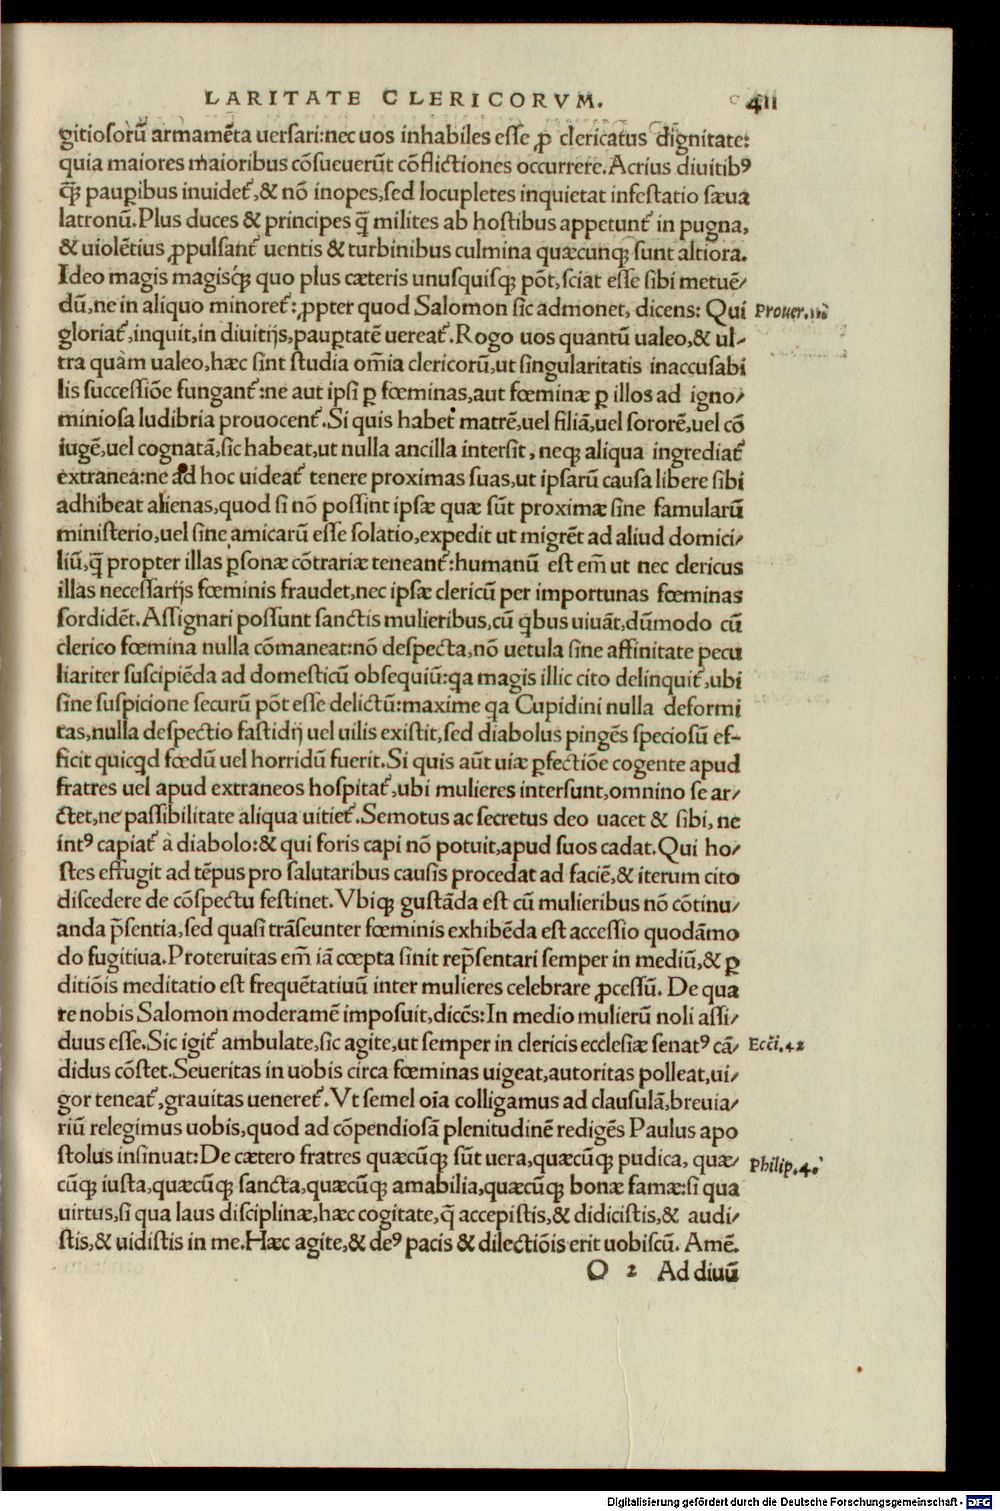 LARITATE CLERICORVM. 411
gitiosorū armamēta uersari:nec uos inhabiles esse ꝓ clericatus dignitate:
quia maiores maioribus cōsueuerūt cōflictiones occurrere.Acrius diuitibꝰ
q̄ꝫ pauꝑibus inuidet᷑,& nō inopes,sed locupletes inquietat infestatio sæua
latronū.Plus duces & principes q̄ milites ab hostibus appetunt᷑ in pugna,
& uiolētius ꝓpulsant᷑ uentis & turbinibus culmina quæcunqꝫ sunt altiora.
Ideo magis magisqꝫ quo plus cæteris unusquisqꝫ pōt,sciat esse sibi metuē/
dū,ne in aliquo minoret᷑:ꝓpter quod Salomon sic admonet, dicens: Qui Prouer.iii
gloriat᷑,inquit,in diuitijs,pauꝑtatē uereat᷑.Rogo uos quantū ualeo,& ul-
tra quàm ualeo,hæc sint studia om̄ia clericorū,ut singularitatis inaccusabi
lis successiōe fungant᷑:ne aut ipsi ꝑ fœminas,aut fœminæ ꝑ illos ad igno/
miniosa ludibria prouocent᷑.Si quis habet matrē,uel filiā,uel sororē,uel cō
iugē,uel cognatā,sic habeat,ut nulla ancilla intersit, neqꝫ aliqua ingrediat᷑
extranea:ne ad hoc uideat᷑ tenere proximas suas,ut ipsarū causa libere sibi
adhibeat alienas,quod si nō possint ipsæ quæ sūt proximæ sine famularū
ministerio,uel sine amicarū esse solatio,expedit ut migrēt ad aliud domici/
liū,q̄ propter illas ꝑsonæ cōtrariæ teneant᷑:humanū est em̄ ut nec clericus
illas necessarijs fœminis fraudet,nec ipsæ clericū per importunas fœminas
sordidēt.Assignari possunt sanctis mulieribus,cū qbus uiuāt,dūmodo cū
clerico fœmina nulla cōmaneat:nō despecta,nō uetula sine affinitate pecu
liariter suscipiēda ad domesticū obsequiū:qa magis illic cito delinquit᷑,ubi
sine suspicione securū pōt esse delictū:maxime qa Cupidini nulla deformi
tas,nulla despectio fastidij uel uilis existit,sed diabolus pingēs speciosū ef-
ficit quicqd fœdū uel horridū fuerit.Si quis aūt uiæ ꝑfectiōe cogente apud
fratres uel apud extraneos hospitat᷑,ubi mulieres intersunt,omnino se ar/
ctet,ne passibilitate aliqua uitiet᷑.Semotus ac secretus deo uacet & sibi, ne
intꝰ capiat᷑ à diabolo:& qui foris capi nō potuit,apud suos cadat.Qui ho/
stes effugit ad tēpus pro salutaribus causis procedat ad faciē,& iterum cito
discedere de cōspectu festinet.Vbiqꝫ gustāda est cū mulieribus nō cōtinu/
anda p̄sentia,sed quasi trāseunter fœminis exhibēda est accessio quodāmo
do fugitiua.Proteruitas em̄ iā cœpta sinit rep̄sentari semper in mediū,& ꝑ
ditiōis meditatio est frequētatiuū inter mulieres celebrare ꝓcessū. De qua
re nobis Salomon moderamē imposuit,dicēs:In medio mulierū noli assi/
duus esse.Sic igit᷑ ambulate,sic agite,ut semper in clericis ecclesiæ senatꝰ cā/ Ecci.42
didus cōstet.Seueritas in uobis circa fœminas uigeat,autoritas polleat,ui/
gor teneat᷑,grauitas ueneret᷑.Vt semel oīa colligamus ad clausulā,breuia/
riū relegimus uobis,quod ad cōpendiosā plenitudinē redigēs Paulus apo
stolus insinuat:De cætero fratres quæcūqꝫ sūt uera,quæcūqꝫ pudica, quæ/ Philip.4.
cūqꝫ iusta,quæcūqꝫ sancta,quæcūqꝫ amabilia,quæcūqꝫ bonæ famæ:si qua
uirtus,si qua laus disciplinæ,hæc cogitate,q̄ accepistis,& didicistis,& audi/
stis,& uidistis in me.Hæc agite,& deꝰ pacis & dilectiōis erit uobiscū. Amē.
O 2 Ad diuū
Digitalisierung gefördert durch die Deutsche Forschungsgemeinschaft - DFG